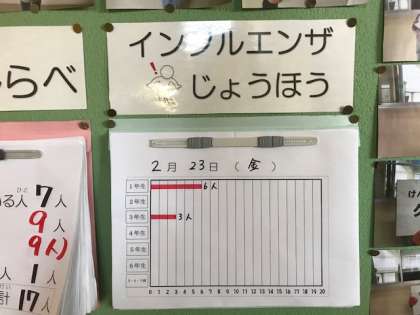 インフルエンザ
じょうほう
らべ
2月 23日 (金)
1年生 6人
2年生
3年生 3人
4年生
5年生
6年生
0 1 2 3 4 5 6 7 8 9 10 11 12 13 14 15 16 17 18 19 20
る人 7人
9人
9人
人 1人
計 17人